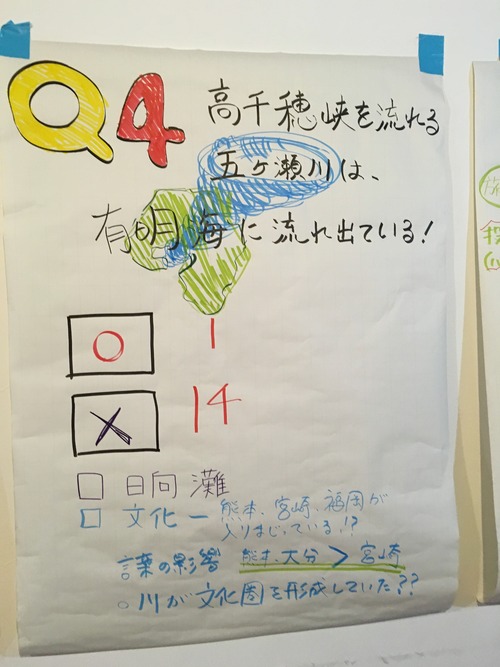 Q4
高千穂峡を流れる
五ヶ瀬川は、
有明海に流れ出ている!
○ 1
× 14
□ 日向灘
□ 文化ー熊本、宮崎、福岡が
入りまじっている!?
言葉の影響 熊本、大分 > 宮崎
○川が文化圏を形成していた??